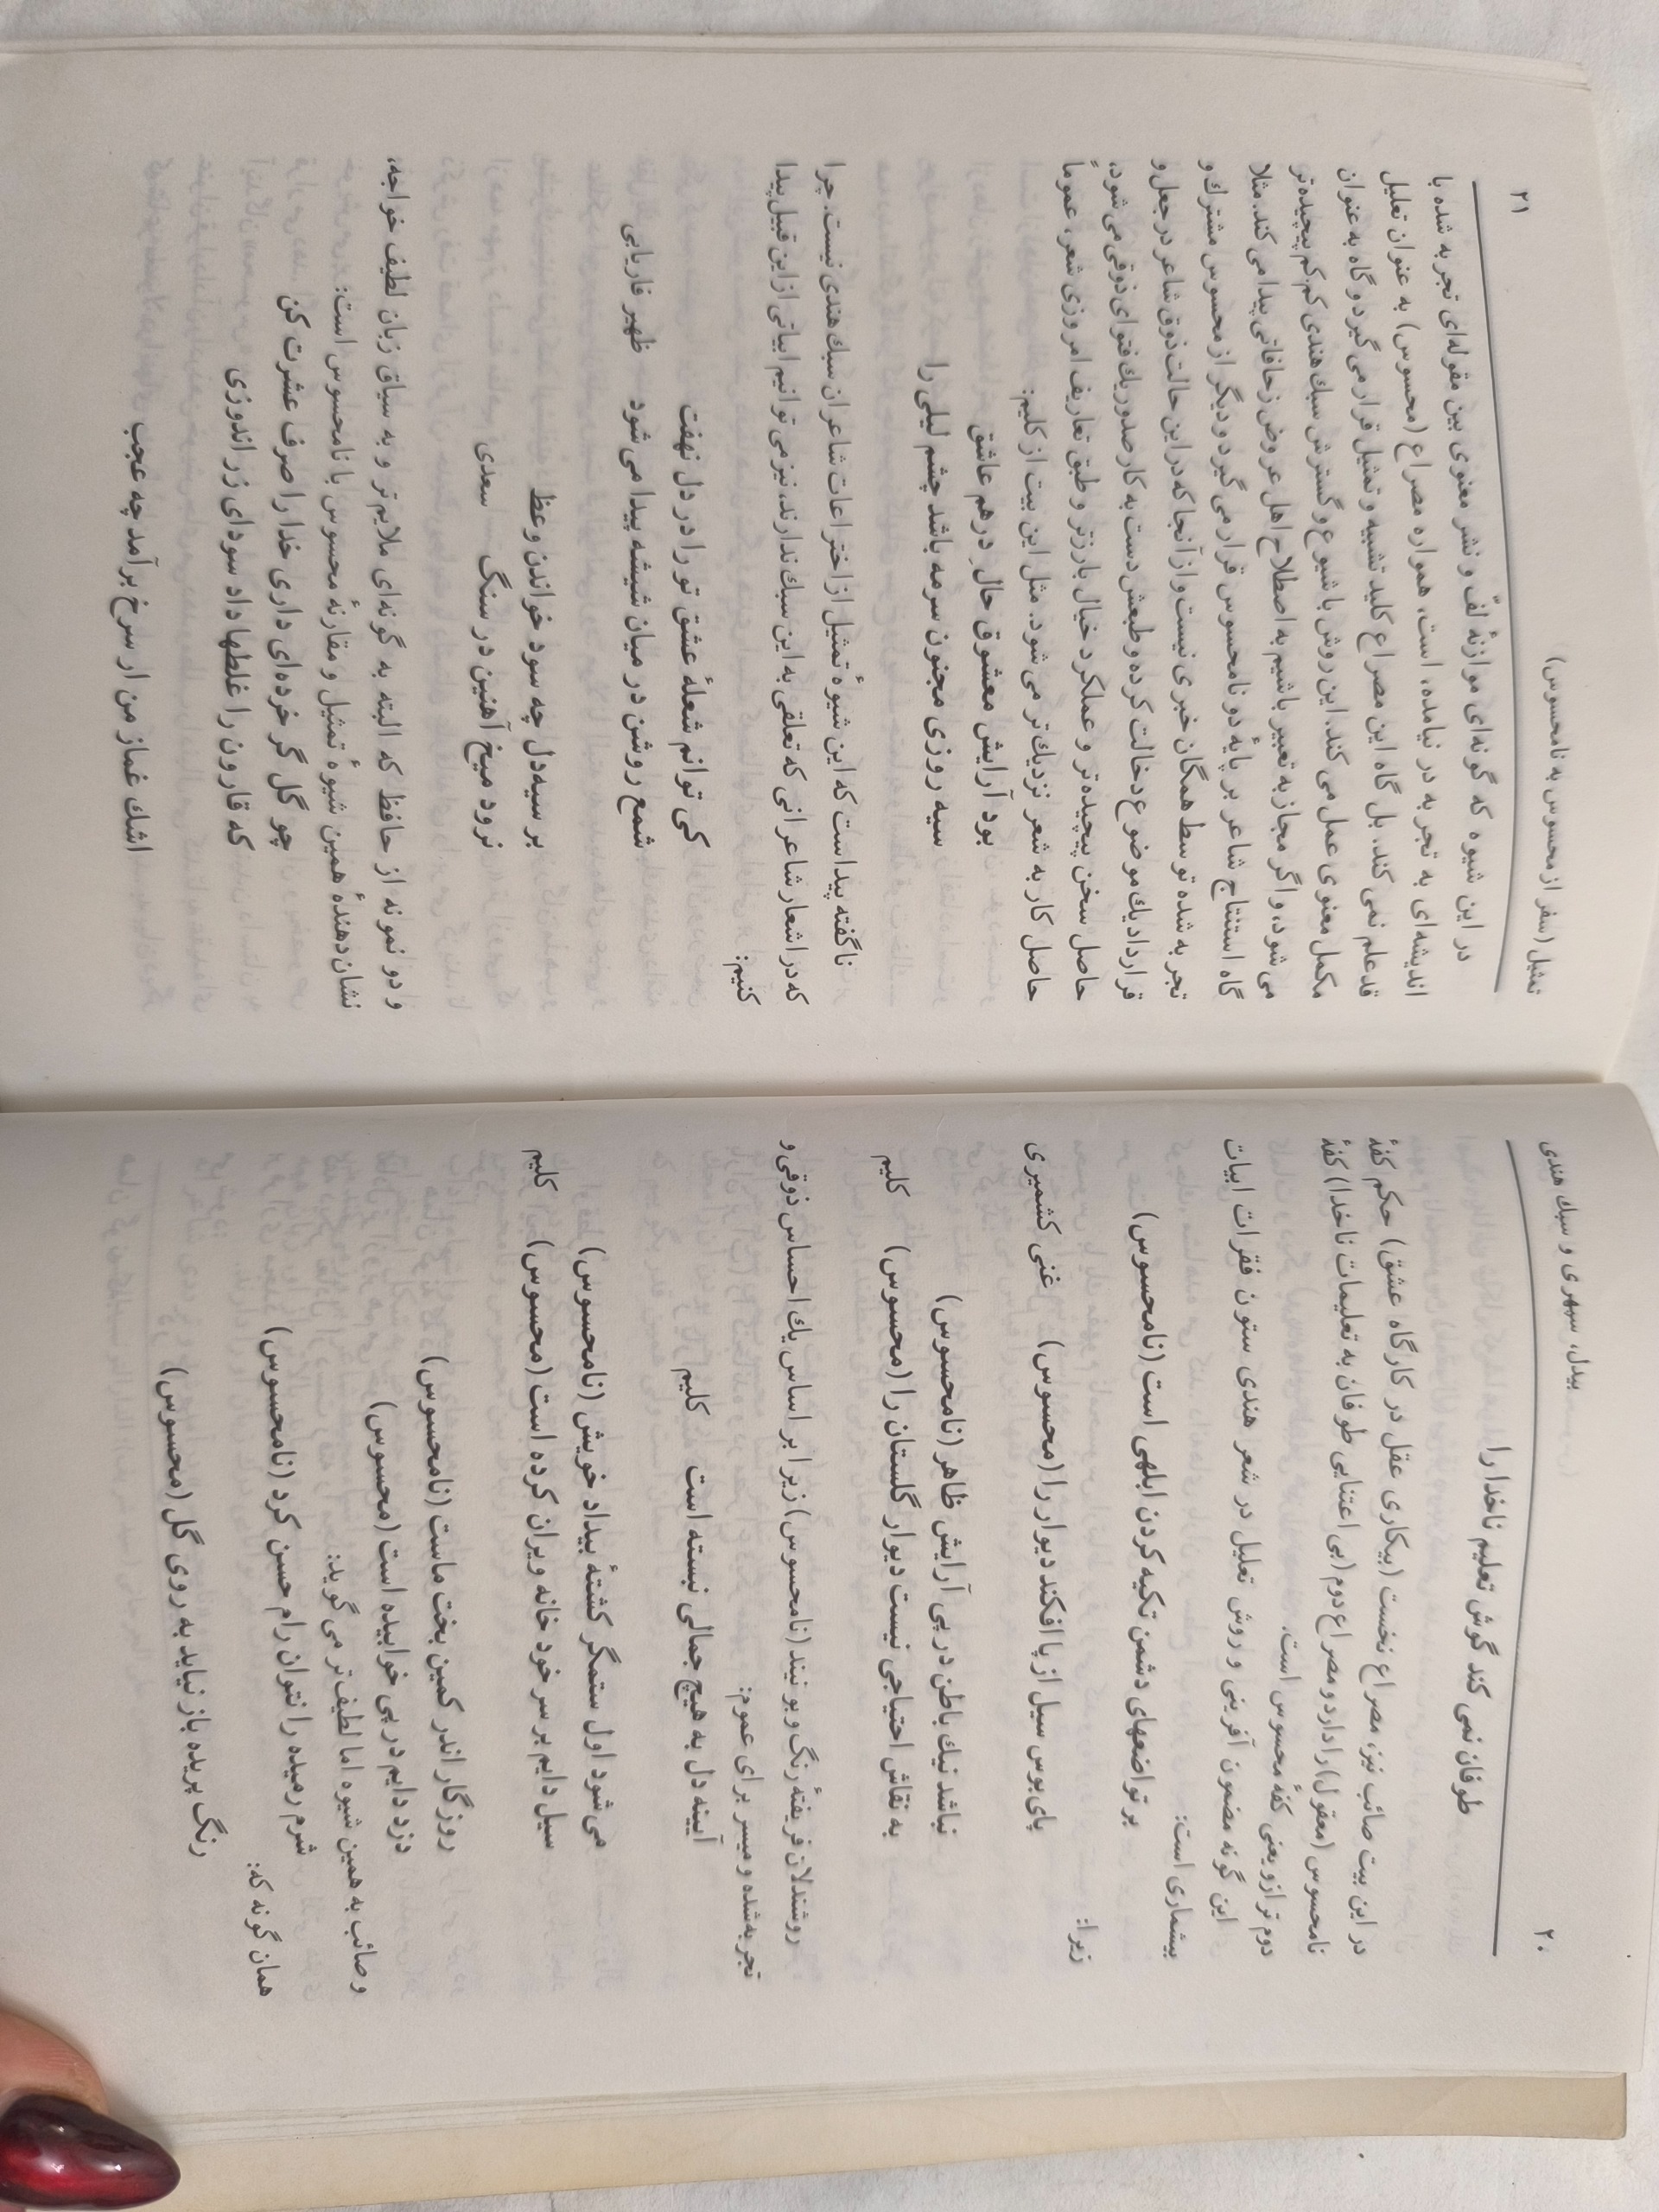 ۲۰
بیدل، سپهری و سبك هندی
طوفان نمی کند گوش تعلیم ناخدا را
در این بیت صائب نیز، مصراع نخست (بیکاری عقل در کارگاه عشق) حکم کفهٔ
نامحسوس (معقول) را دارد و مصراع دوم (بی اعتنایی طوفان به تعلیمات ناخدا) کفهٔ
دوم ترازو یعنی کفهٔ محسوس است.
این گونه مضمون آفرینی و روش تعلیل در شعر هندی ستون فقرات ابیات
بیشماری است:
بر تواضعهای دشمن تکیه کردن ابلهی است (نامحسوس)
زیرا:
پای بوس سیل از پا افکند دیوار را (محسوس) غنی کشمیری
نباشد نیك باطن در پی آرایش ظاهر (نامحسوس)
به نقاش احتیاجی نیست دیوار گلستان را (محسوس) کلیم
روشندلان فریفتهٔ رنگ و بو نیند (نامحسوس) زیرا بر اساس یك احساس ذوقی و
تجربه شده و میسر برای عموم:
آیینه دل به هیچ جمالی نبسته است کلیم
می شود اول ستمگر کشتهٔ بیداد خویش (نامحسوس)
سیل دایم بر سر خود خانه ویران کرده است (محسوس) کلیم
روزگار اندر کمین بخت ماست (نامحسوس)
دزد دایم در پی خوابیده است (محسوس)
و صائب به همین شیوه اما لطیف تر می گوید:
شرم رمیده را نتوان رام حسن کرد (نامحسوس)
همان گونه که:
رنگ پریده باز نیاید به روی گل (محسوس)
تمثیل (سفر از محسوس به نامحسوس)
۲۱
در این شیوه که گونه ای موازنهٔ لفّ و نشر معنوی بین مقوله ای تجربه شده با
اندیشه ای به تجربه در نیامده، است، همواره مصراع (محسوس) به عنوان تعلیل
قد علم نمی کند، بل گاه این مصراع کلید تشبیه و تمثیل قرار می گیرد و گاه به عنوان
مکمل معنوی عمل می کند. این روش با شیوع و گسترش سبك هندی کم کم پیچیده تر
می شود، و اگر مجاز به تعبیر باشیم به اصطلاح اهل عروض زحافاتی پیدا می کند. مثلا
گاه استنتاج شاعر بر پایهٔ دو نامحسوس قرار می گیرد و دیگر از محسوس مشترك و
تجربه شده توسط همگان خبری نیست و از آنجا که در این حالت ذوق شاعر در جعل و
قرارداد یك موضوع دخالت کرده و طبعش دست به کار صدور یك فتوای ذوقی می شود،
حاصل سخن پیچیده تر و عملکرد خیال بارزتر و طبق تعاریف امروزی شعر، عموماً
حاصل کار به شعر نزدیك تر می شود. مثل این بیت از کلیم:
بود آرایش معشوق حالِ درهم عاشق
سیه روزی مجنون سرمه باشد چشم لیلی را
ناگفته پیداست که این شیوهٔ تمثیل از اختراعات شاعران سبك هندی نیست. چرا
که در اشعار شاعرانی که تعلقی به این سبك ندارند، نیز می توانیم ابیاتی از این قبیل پیدا
کنیم:
کی توانم شعلهٔ عشق تو را در دل نهفت
شمع روشن در میان شیشه پیدا می شود ظهیر فاریابی
بر سیه دل چه سود خواندن وعظ
نرود میخ آهنین در سنگ سعدی
و دو نمونه از حافظ که البته به گونه ای ملایم تر و به سیاق زبان لطیف خواجه،
نشان دهندهٔ همین شیوهٔ تمثیل و مقارنهٔ محسوس با نامحسوس است:
چو گل گر خرده ای داری خدا را صرف عشرت کن
که قارون را غلطها داد سودای زر اندوزی
اشك غماز من ار سرخ برآمد چه عجب